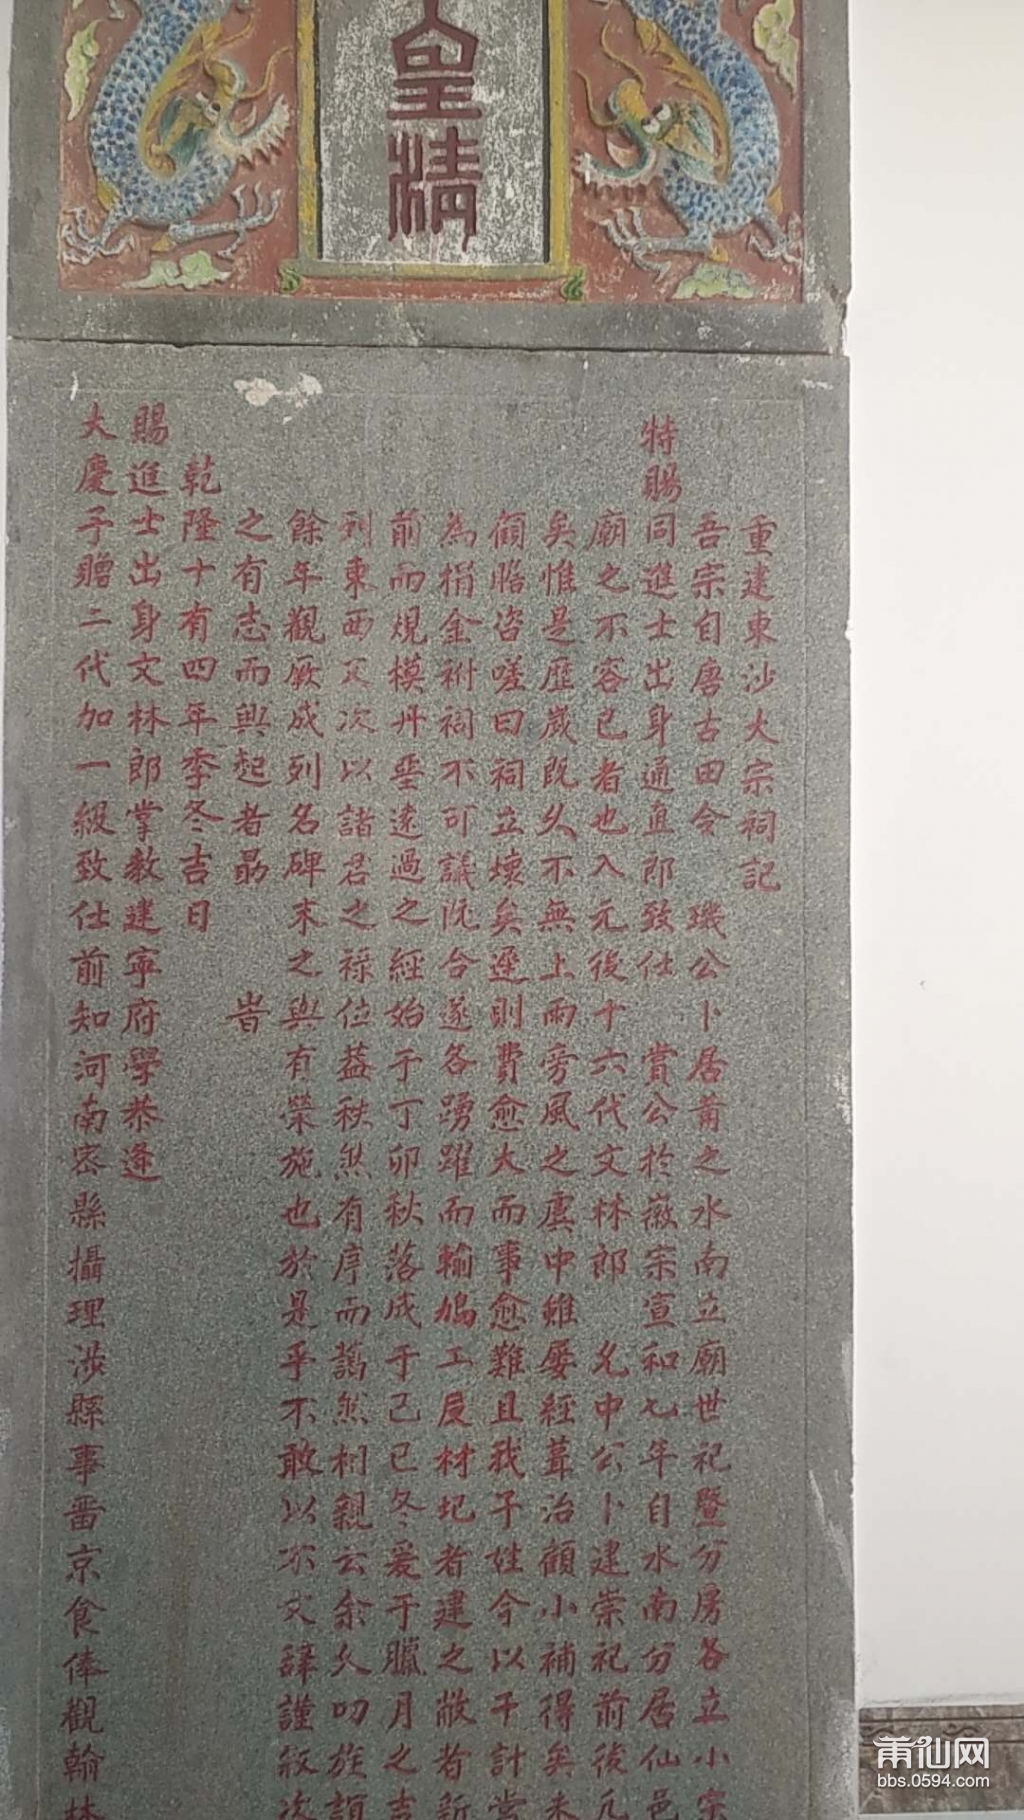 皇清
重建東沙大宗祠記
吾宗自唐古田令 璣公卜居莆之水南立廟世祀暨分房各立小宗
特賜同進士出身通直郎致仕 賞公於徽宗宣和七年自水南分居仙邑
廟之不容已者也入元後十六代文林郎 允中公卜建崇祀前後凡
矣惟是歷歲既久不無上雨旁風之虞中雖屢經葺治顧小補得矣未
顧瞻咨嗟曰祠立壞矣遲則費愈大而事愈難且我子姓今以千計
為捐金祔祠不可議既合遂各踴躍而輸鳩工庀材圮者建之敝者新
前而規模丹堊遠過之經始于丁卯秋落成于己巳冬爰于臘月之吉
列東西又次以諸君之祿位益秩然有序而藹然相親云余久叨族誼
餘年觀厥成列名碑末之與有榮施也於是乎不敢以不文辭謹敘次
之有志而興起者勗 旹
乾隆十有四年季冬吉日
賜進士出身文林郎掌教建寧府學恭逢
大慶予贈二代加一級致仕前知河南密縣攝理涉縣事晋京食俸觀翰林
莆仙网
bbs.0594.com